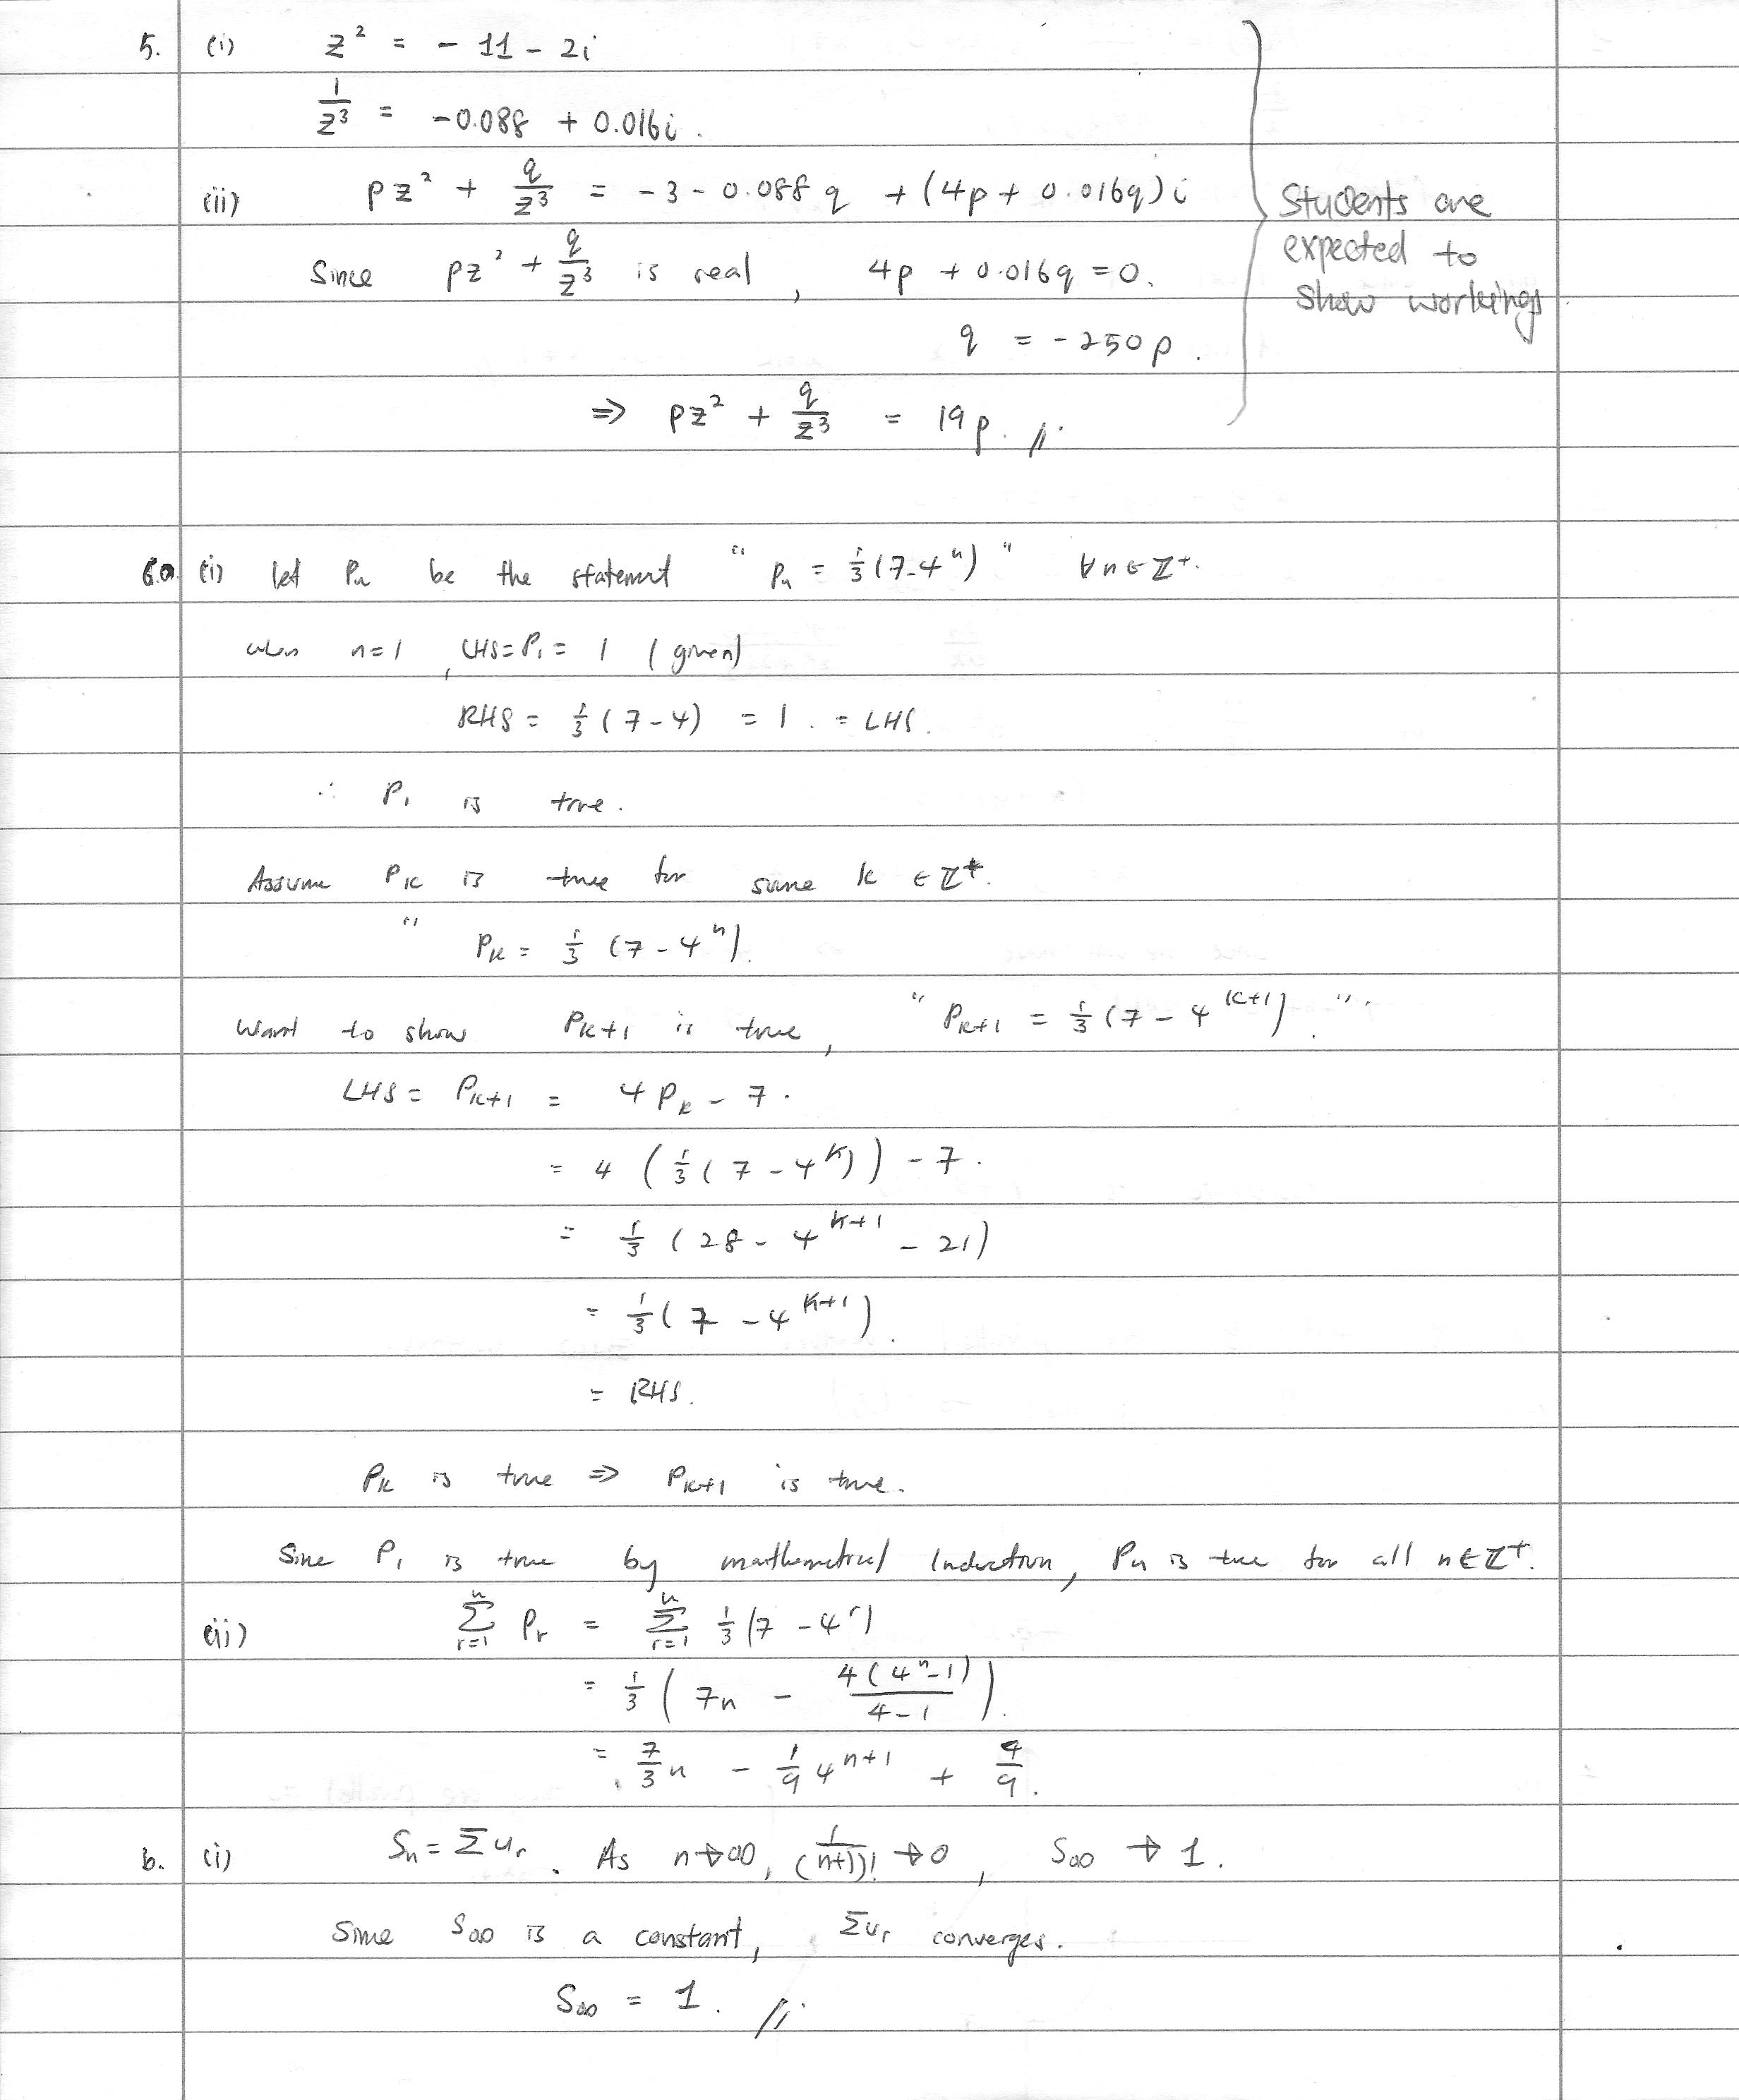 5. (i) z² = - 11 - 2i
1/z³ = -0.088 + 0.016i .
(ii) pz² + q/z³ = -3 - 0.088q + (4p + 0.016q)i
Since pz² + q/z³ is real , 4p + 0.016q = 0.
q = -250p .
⇒ pz² + q/z³ = 19p. //
Students are
expected to
show workings
6.a (i) let Pn be the statement " Pn = 1/3(7-4ⁿ) " ∀n∈ℤ⁺.
when n=1 , LHS=P₁ = 1 (given)
RHS = 1/3(7-4) = 1 . = LHS.
∴ P₁ is true.
Assume Pk is true for some k ∈ℤ⁺.
" Pk = 1/3 (7-4ⁿ).
Want to show Pk+1 is true , " Pk+1 = 1/3(7-4^(k+1)) . " .
LHS = Pk+1 = 4Pk - 7 .
= 4 (1/3(7-4^k)) - 7 .
= 1/3 (28 - 4^(k+1) - 21)
= 1/3(7 - 4^(k+1)) .
= RHS.
Pk is true ⇒ Pk+1 is true.
Since P₁ is true by mathematical Induction, Pn is true for all n∈ℤ⁺.
(ii) Σ(r=1 to n) Pr = Σ(r=1 to n) 1/3(7-4^r)
= 1/3 (7n - 4(4ⁿ-1)/(4-1)) .
= 7/3 n - 1/9 4^(n+1) + 4/9 .
b. (i) Sn = Σur . As n→∞, 1/(n+1)! →0 , S∞ → 1.
Since S∞ is a constant, Σur converges.
S∞ = 1. //